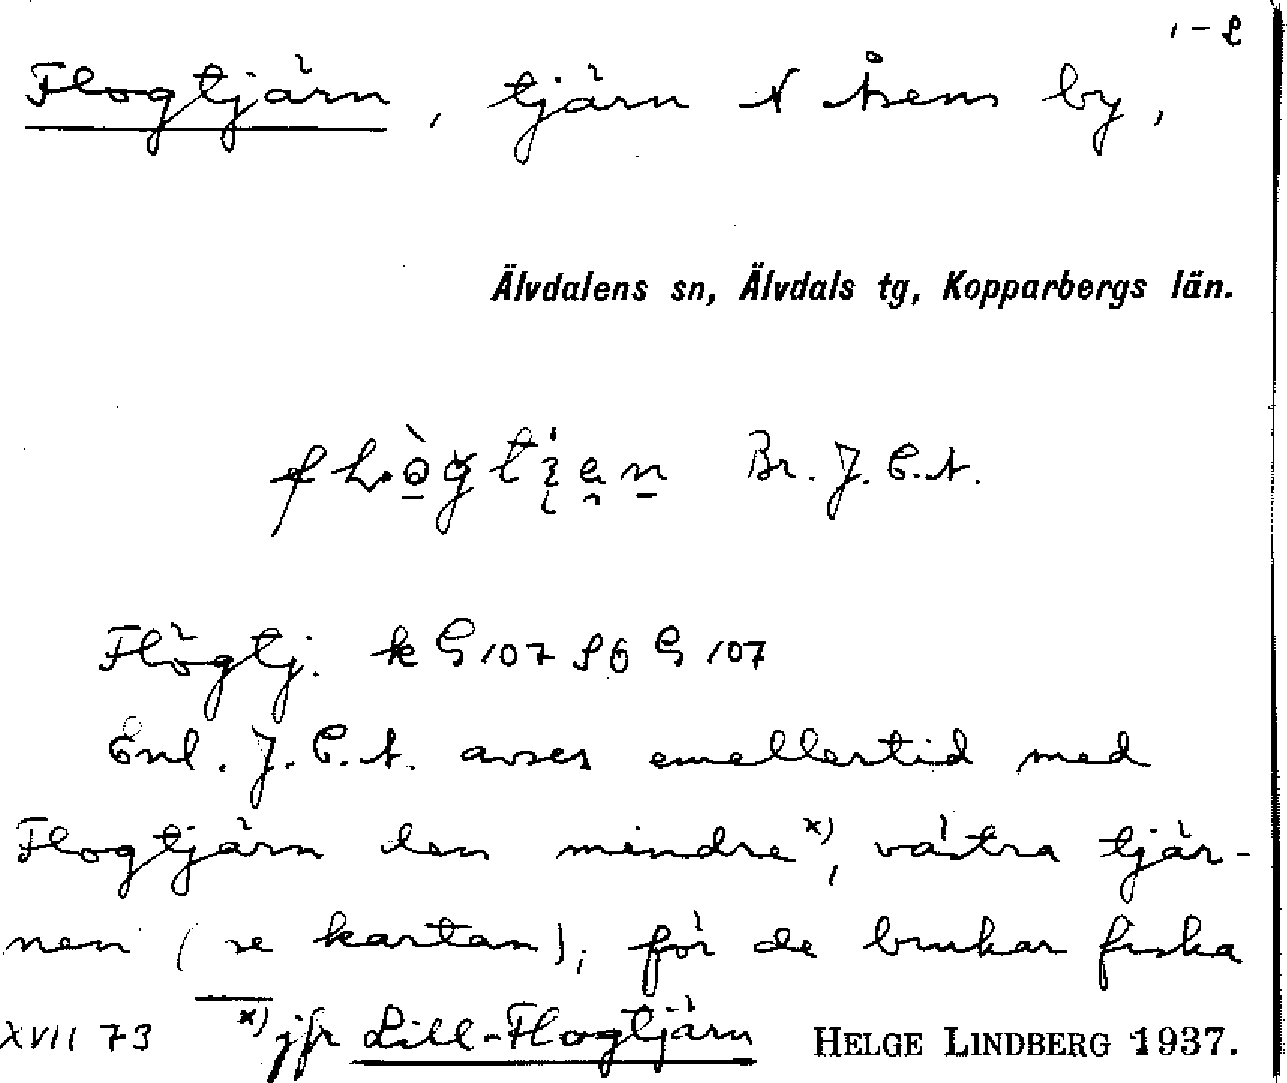 1-2
Flogtjärn, tjärn N Åsens by,
Älvdalens sn, Älvdals tg, Kopparbergs län.
Br. J. E. A.
Flögtj. k G 107 S6 G 107
Enl. J. E. A. avses emellertid med
Flogtjärn den mindre x), västra tjär-
nen (se kartan), för de brukar fiska
x) jfr Lill-Flogtjärn
XVII 73
HELGE LINDBERG 1937.